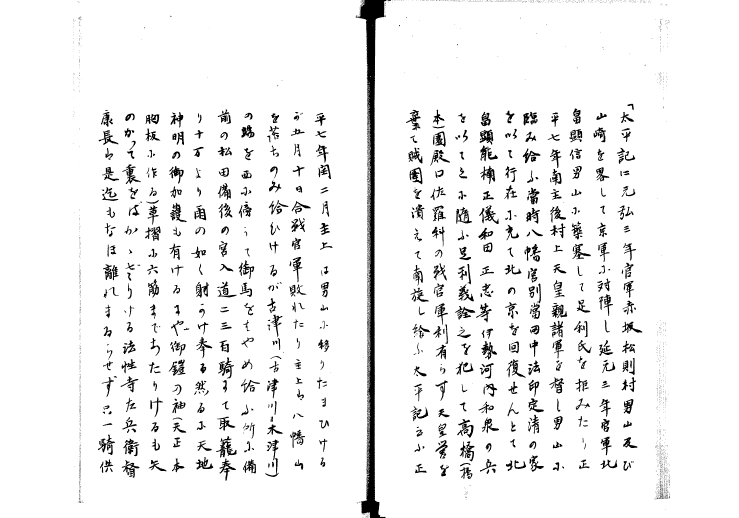 「太平記に元弘三年官軍赤坂松則村男山及び
山崎を畧して京軍に対陣し延元三年官軍北
畠顕信男山に築塞して足利氏を拒みたり正
平七年南主後村上天皇親諸軍を督し男山に
臨み給ふ當時八幡宮別當田中法印定清の家
を以て行在に充て北の京を回復せんとて北
畠顕能楠正儀和田正志等伊勢河内和泉の兵
を以て之に随ふ足利義詮之を犯して高橋(橋
本)園殿口佐羅科の戦官軍利有らず天皇営を
棄て賊圍を潰えて南旋し給ふ太平記云ふ正
平七年閏二月主上は男山に移りたまひける
が五月十日合戦官軍敗れたり主上も八幡山
を落ちのみ給ひけるが古津川(古津川=木津川)
の端を西に傍うて御馬をはやめ給ふ所に備
前の松田備後の宮入道二三百騎にて取籠奉
り十方より雨の如く射かけ奉る然るに天地
神明の御加護も有けるにや御鎧の袖(天正本
胸板に作る)草摺に六筋まであたりけるも矢
のかつて裏をばかゝざりける法性寺左兵衛督
康長も是迄もなほ離れまゐらせず只一騎供